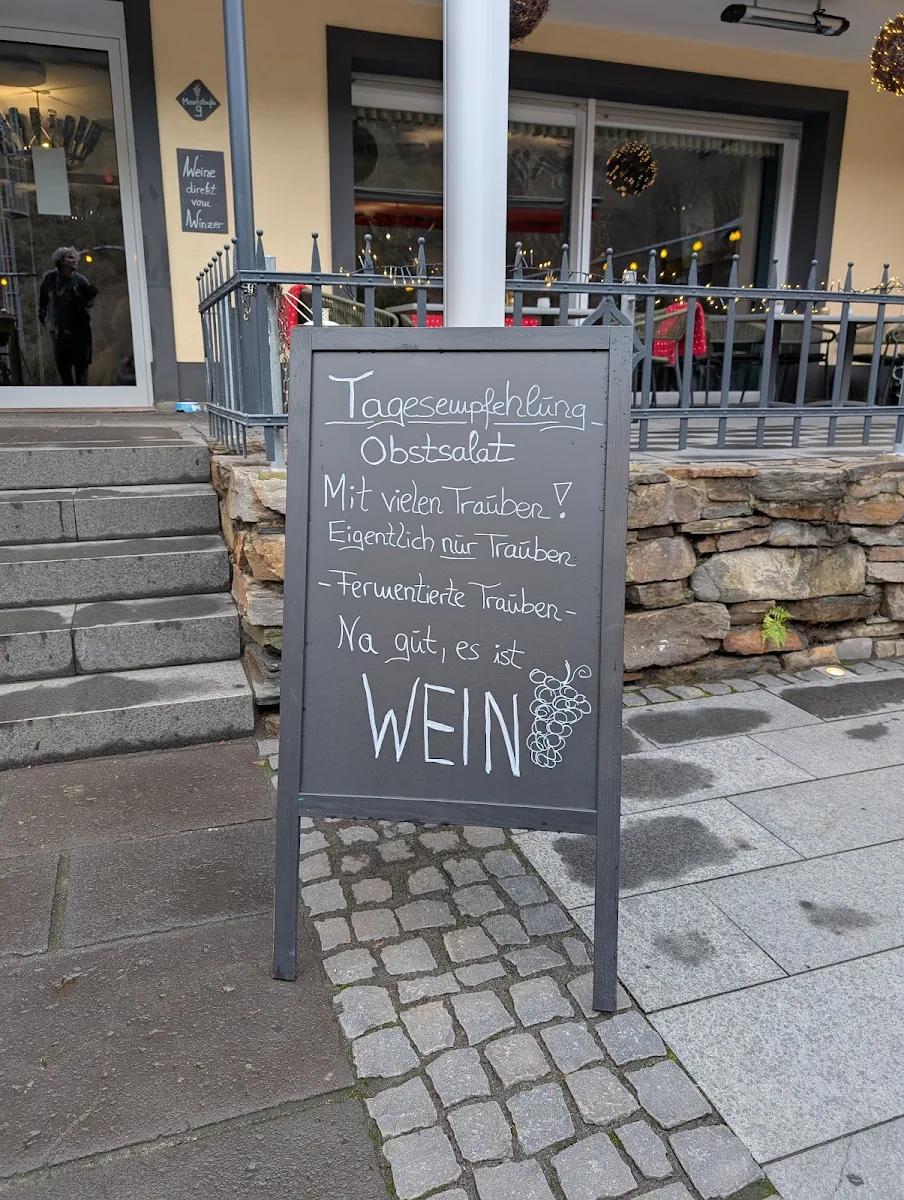 Moselstraße
9
Weine
direkt
vom
Winzer
Tagesempfehlung
Obstsalat
Mit vielen Trauben!
Eigentlich nur Trauben
-Fermentierte Trauben-
Na gut, es ist
WEIN